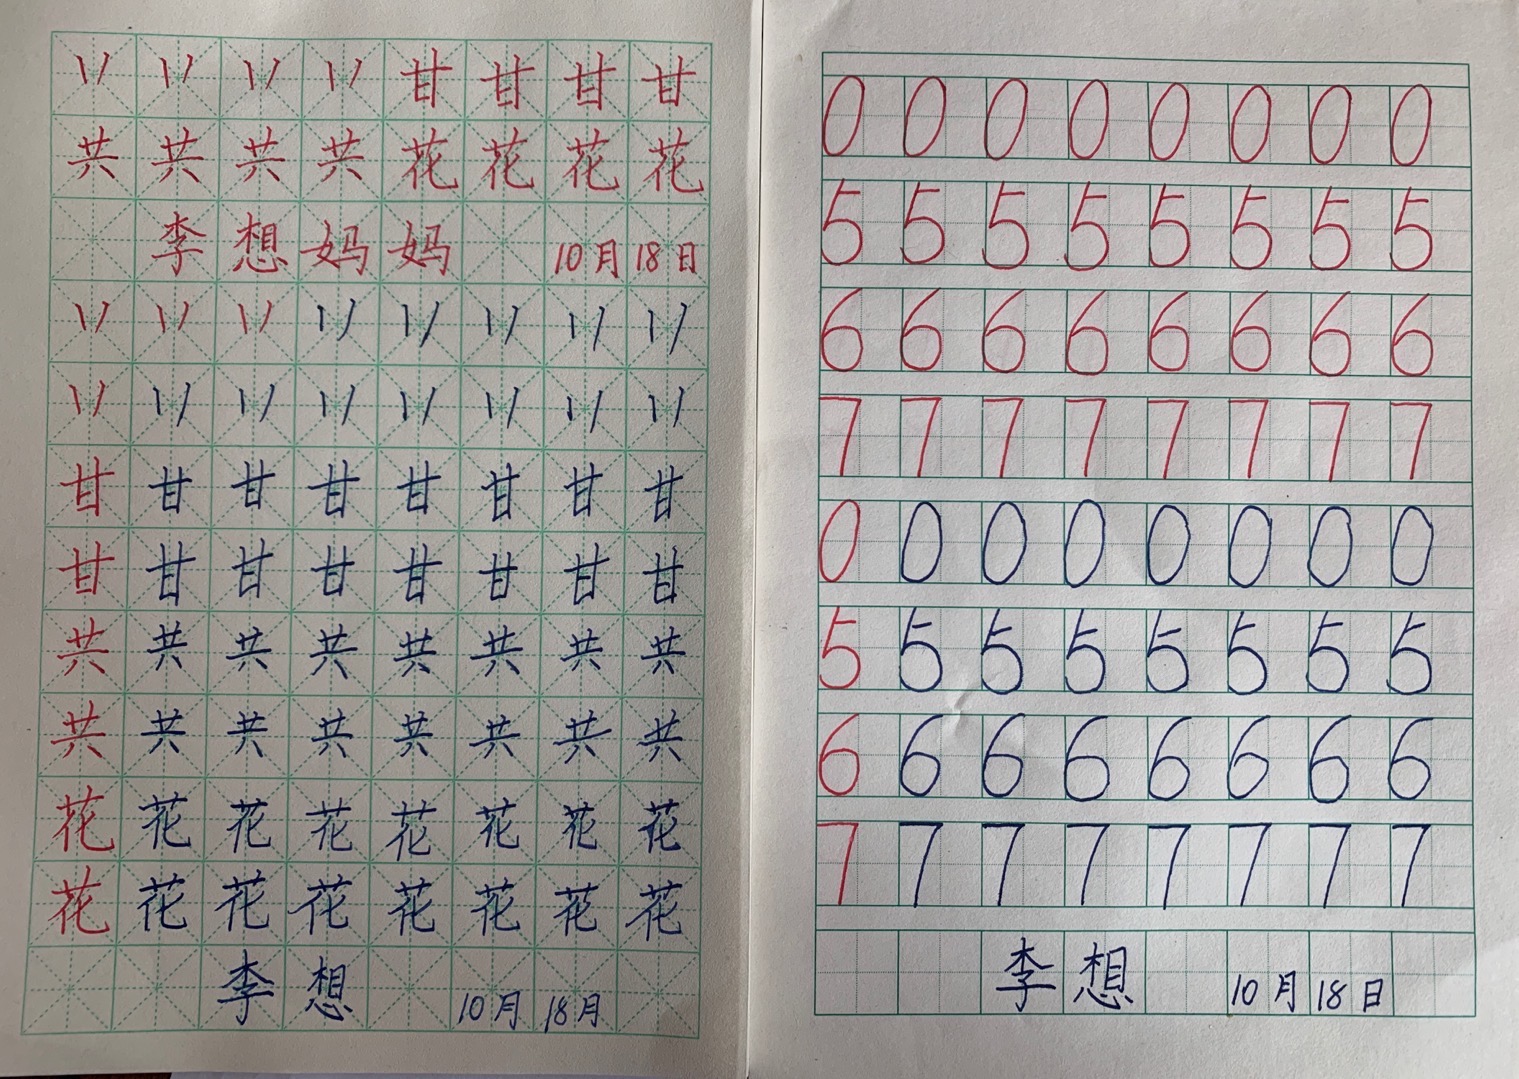 丷 丷 丷 丷 甘 甘 甘 甘
共 共 共 共 花 花 花 花
李 想 妈 妈 10月18日
丷 丷 丷 丷 丷 丷 丷 丷
丷 丷 丷 丷 丷 丷 丷 丷
甘 甘 甘 甘 甘 甘 甘 甘
甘 甘 甘 甘 甘 甘 甘 甘
共 共 共 共 共 共 共 共
共 共 共 共 共 共 共 共
花 花 花 花 花 花 花 花
花 花 花 花 花 花 花 花
李 想 10月18月
0 0 0 0 0 0 0 0
5 5 5 5 5 5 5 5
6 6 6 6 6 6 6 6
7 7 7 7 7 7 7 7
0 0 0 0 0 0 0 0
5 5 5 5 5 5 5 5
6 6 6 6 6 6 6 6
7 7 7 7 7 7 7 7
李 想 10月18日